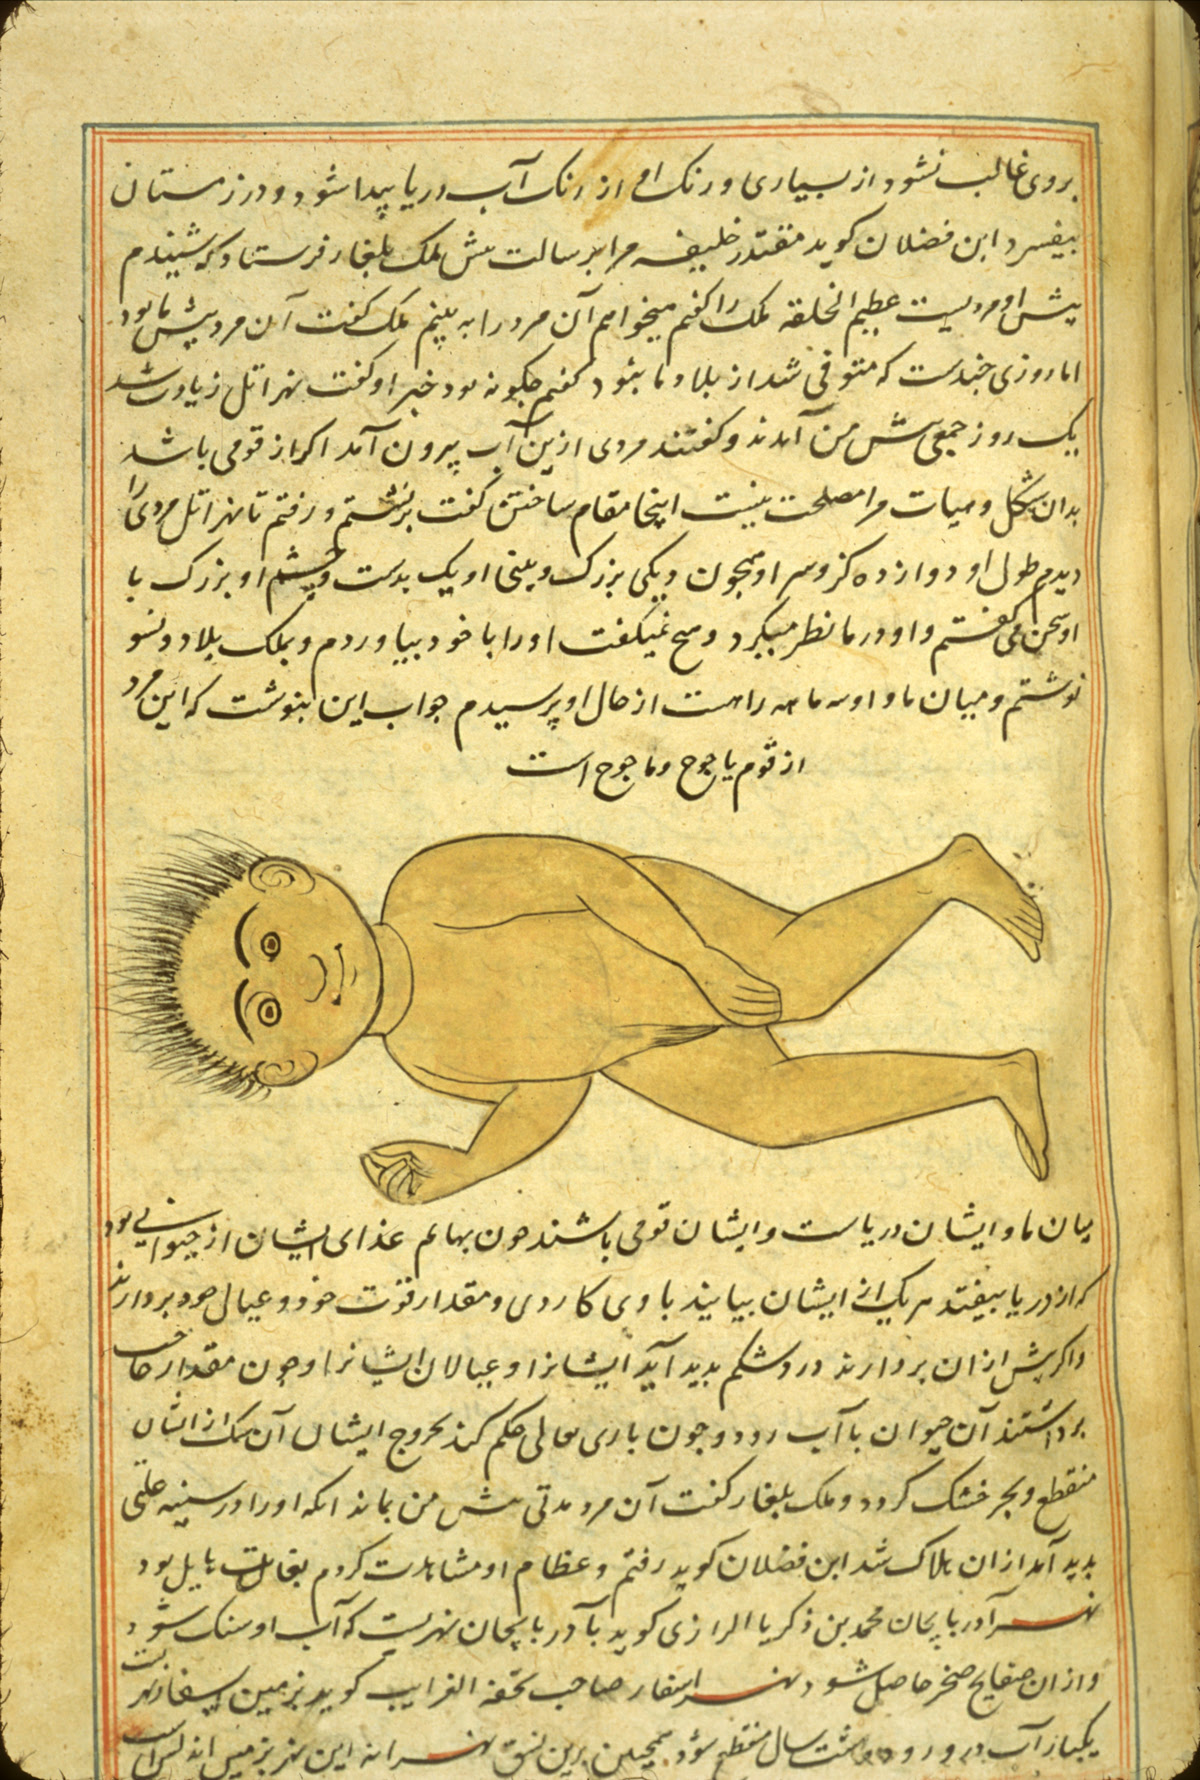 بروی غالب نشود از بسیاری و رنک او از رنک آب دریا پیدا شود و در زمستان
بیفسرد ابن فضلان کوید مقتدر خلیفه مرا برسالت پیش ملک بلغار فرستاد که شنیدم
پیش او مردیست عظیم الخلقه ملک را کفتم میخواهم آن مرد را به بینم ملک کفت آن مرد پیش ما بود
اما روزی جندست که متوفی شد از بلاد ما نبود کفتم جکونه بود خبر او کفت نهر اتل زیادت شد
یک روز جمعی پیش من آمدند و کفتند مردی ازین آب پیرون آمد اکر از قومی باشد
بدان شکل و هیات مرا مصلحت نیست اینجا مقام ساختن کفت برنشستم و رفتم تا نهر اتل مردی را
دیدم طول او دوازده کز و سر او همجون دیکی بزرک و بینی او یک بدست و جشم او بزرک با
او سخن می کفتم و او در ما نظر میکرد و هیچ نمیکفت او را با خود بیاوردم و بملک بلاد ونسو
نوشتم و میان ما و او سه ماهه راهست از حال او پرسیدم جواب این بنوشت که این مرد
از قوم یاجوج و ماجوج است
میان ما و ایشان دریاست و ایشان قومی باشند جون بهایم غذای ایشان از حیوانی بود
که از دریا بیفتد هر یک از ایشان بیایند با وی کاردی و مقدار قوت خود و عیال خود بردارند
و اکر پیش از آن بردارند درد شکم پدید آید ایشانرا و عیالان ایشانرا و جون مقدار حاجت
برداشتند آن حیوان با آب رود و جون باری تعالی حکم کند بخروج ایشان آن سمک از ایشان
منقطع و بحر خشک کردد و ملک بلغار کفت آن مرد مدتی پیش من بماند انکه او را در سینه علتی
پدید آمد از آن هلاک شد ابن فضلان کوید رفتم و عظام او مشاهدت کردم بغایت هایل بود
نهر آدربایجان محمد بن زکریا الرازی کوید بآدربایجان نهریست که آب او سنک شود
و از آن صفایح صخر حاصل شود نهر اسفار صاحب تحفة الغرایب کوید بزمین اسفار نهریست
یکبار آب درو رود هشت سال منقطع شود همجنین برین نسق نهر این نهر بزمین اندلس است